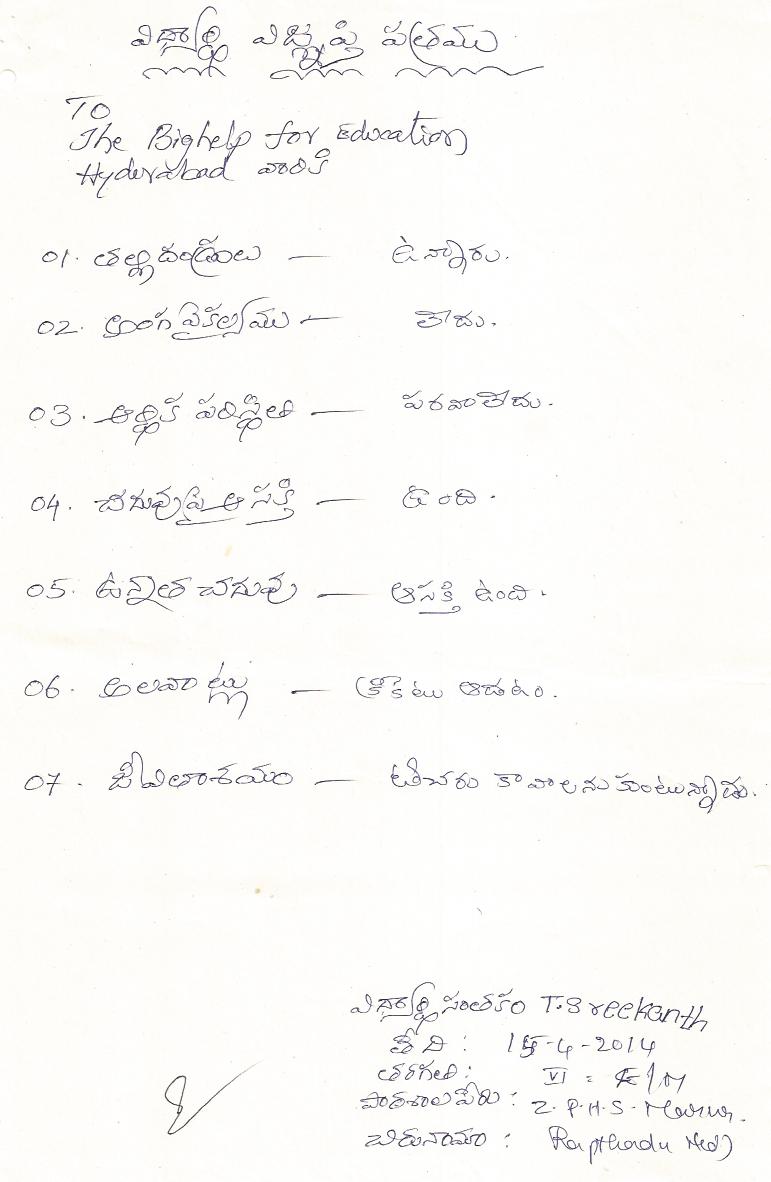 విద్యార్థి విజ్ఞప్తి పత్రము
To
The Bighelp for Education
Hyderabad వారికి
01. తల్లిదండ్రులు — ఉన్నారు.
02. అంగవైకల్యము — లేదు.
03. ఆర్థిక పరిస్థితి — పరవాలేదు.
04. చదువుపై ఆసక్తి — ఉంది.
05. ఉన్నత చదువు — ఆసక్తి ఉంది.
06. అలవాట్లు — క్రికెటు ఆడటం.
07. జీవితాశయం — టీచరు కావాలనుకుంటున్నాడు.
విద్యార్థి సంతకం T.Sreekanth
తేది : 15-4-2014
తరగతి : VI = E/M
పాఠశాల పేరు : Z.P.H.S. Marur.
చిరునామా : Rapthadu (Md)